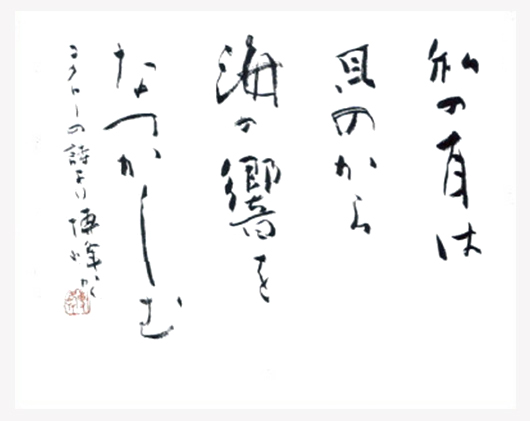 私の耳は
貝のから
海の響を
なつかしむ
コクトーの詩より 博峰かく